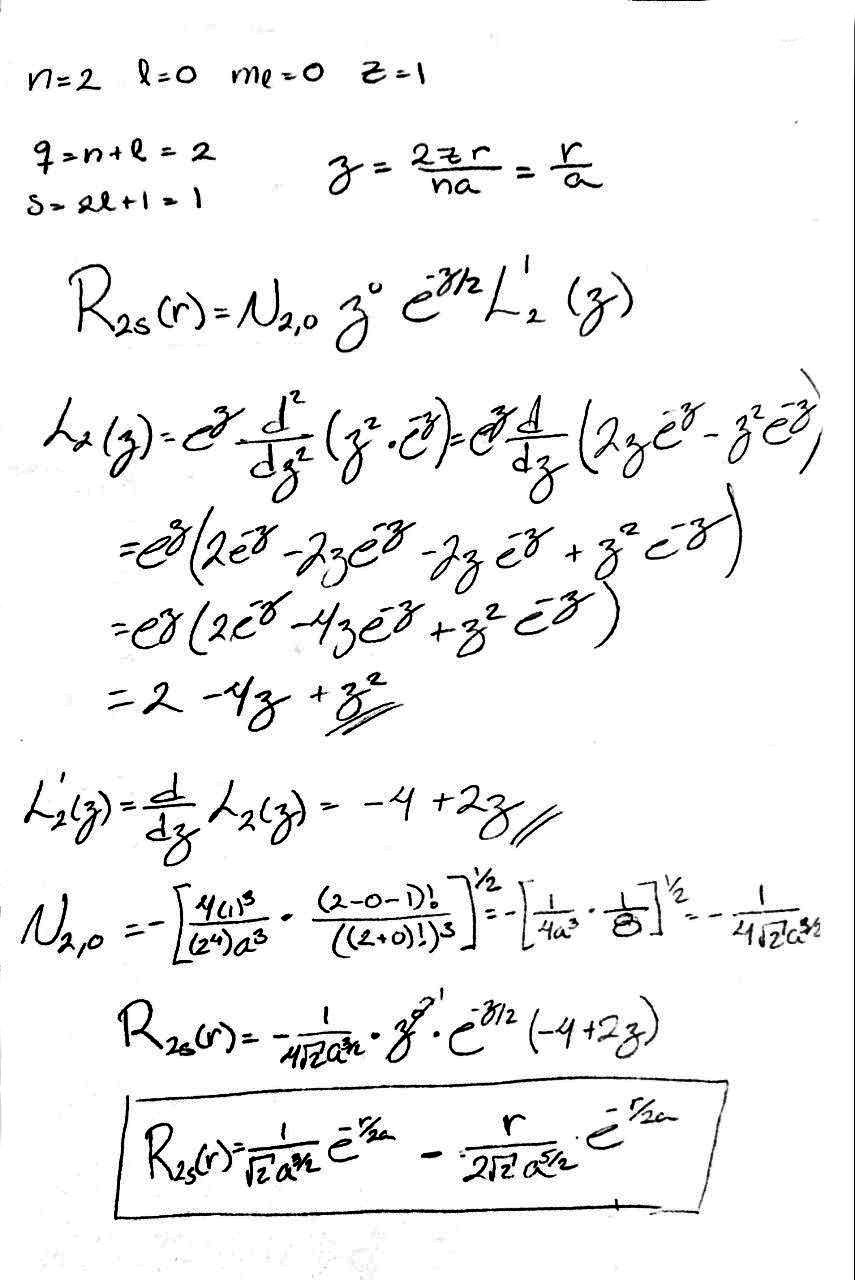 n=2 l=0 ml=0 Z=1
q=n+l=2
z = 2Zr/na = r/a
s=2l+1=1
R₂ₛ(r)=N₂,₀ z⁰ e^(-z/2) L¹₂(z)
L₂(z)=e^z d²/dz² (z²·e^(-z))=e^z d/dz (2ze^(-z) - z²e^(-z))
=e^z(2e^(-z) -2ze^(-z) -2ze^(-z) + z²e^(-z))
=e^z(2e^(-z) -4ze^(-z) +z²e^(-z))
=2 -4z +z²
L¹₂(z)=d/dz L₂(z)= -4 +2z
N₂,₀ =-[4(1)³/(2⁴)a³ · (2-0-1)!/((2+0)!)³]^(1/2)=-[1/4a³ · 1/8]^(1/2)=- 1/4√2 a^(3/2)
R₂ₛ(r)= - 1/4√2 a^(3/2) · z⁰ ¹ · e^(-z/2) (-4+2z)
R₂ₛ(r)= 1/√2 a^(3/2) e^(-r/2a) - r/2√2 a^(5/2) · e^(-r/2a)